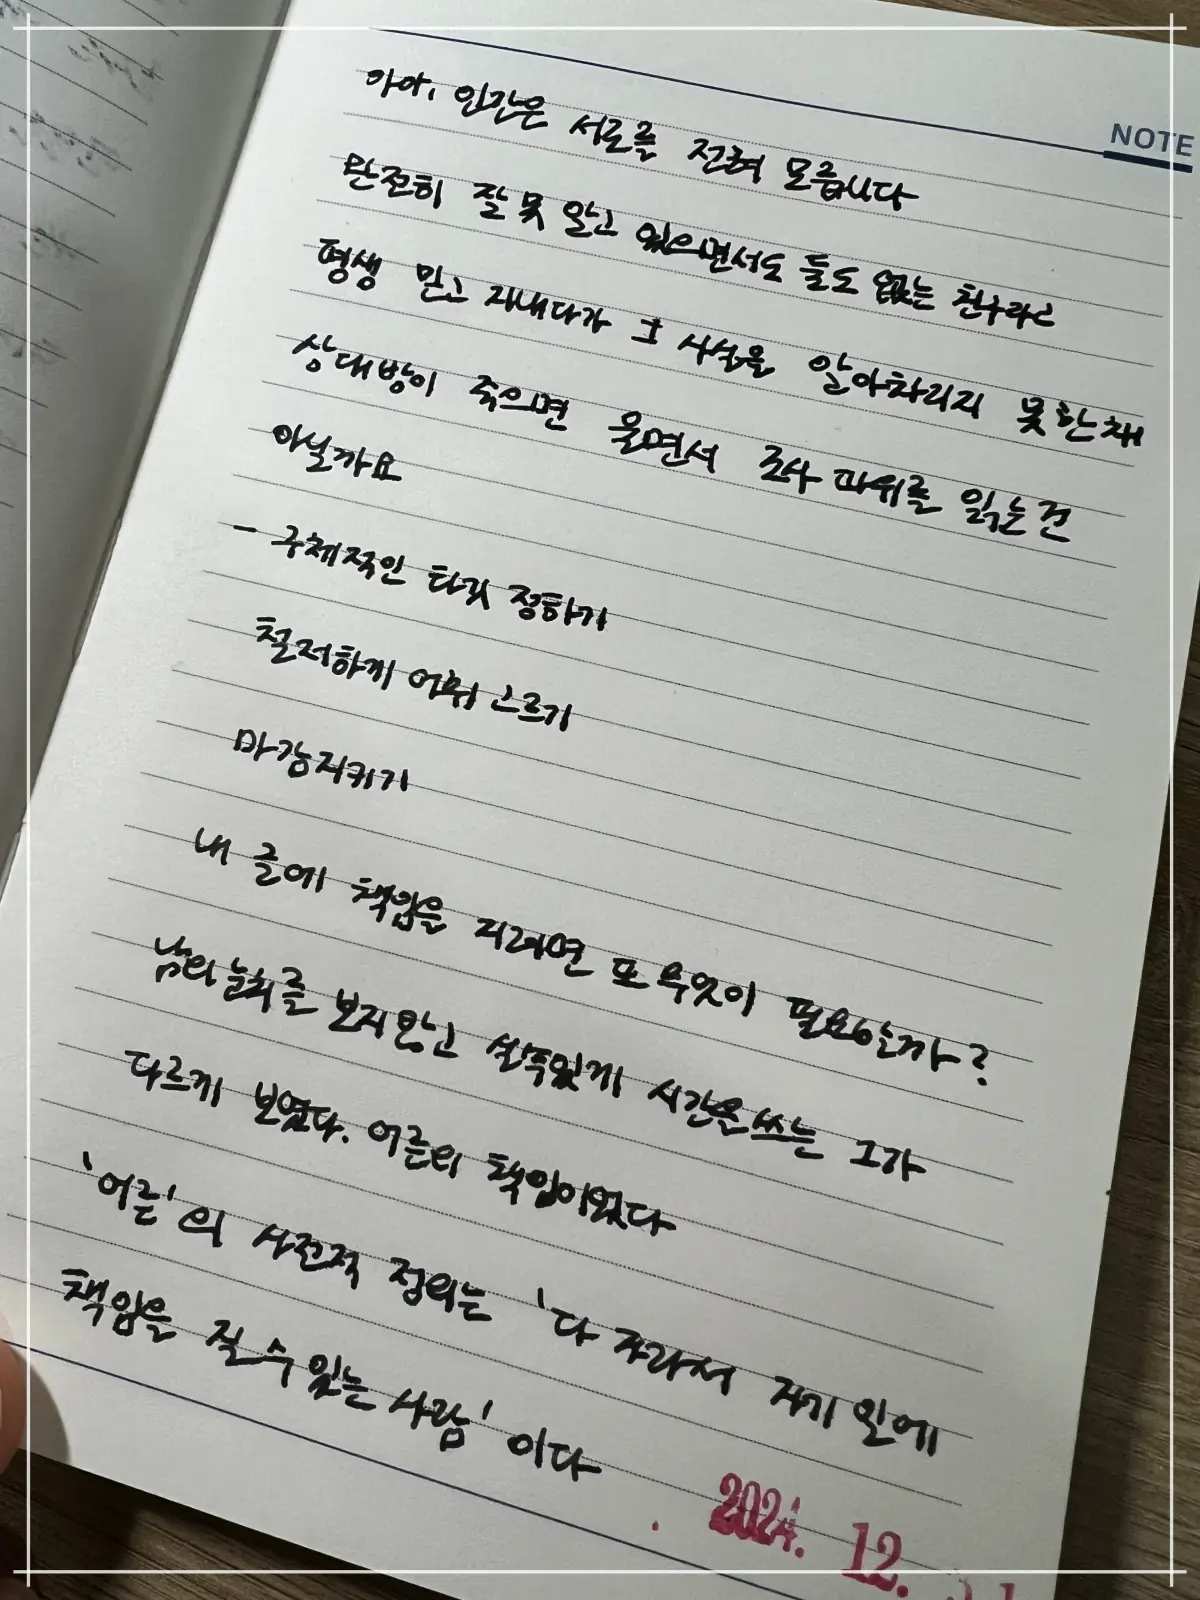 NOTE
아아, 인간은 서로를 전혀 모릅니다
완전히 잘못 알고 있으면서도 둘도 없는 친구라고
평생 믿고 지내다가 그 사실을 알아차리지 못한채
상대방이 죽으면 울면서 조사 따위를 읽는건
아닐까요
- 구체적인 타깃 정하기
철저하게 어휘 고르기
마감지키기
내 글에 책임을 지려면 또 무엇이 필요할까?
남의 눈치를 보지않고 실속있게 시간을 쓰는 그가
다르게 보였다. 어른의 책임이었다
'어른'의 사전적 정의는 '다 자라서 자기 일에
책임을 질 수 있는 사람' 이다
2024. 12.